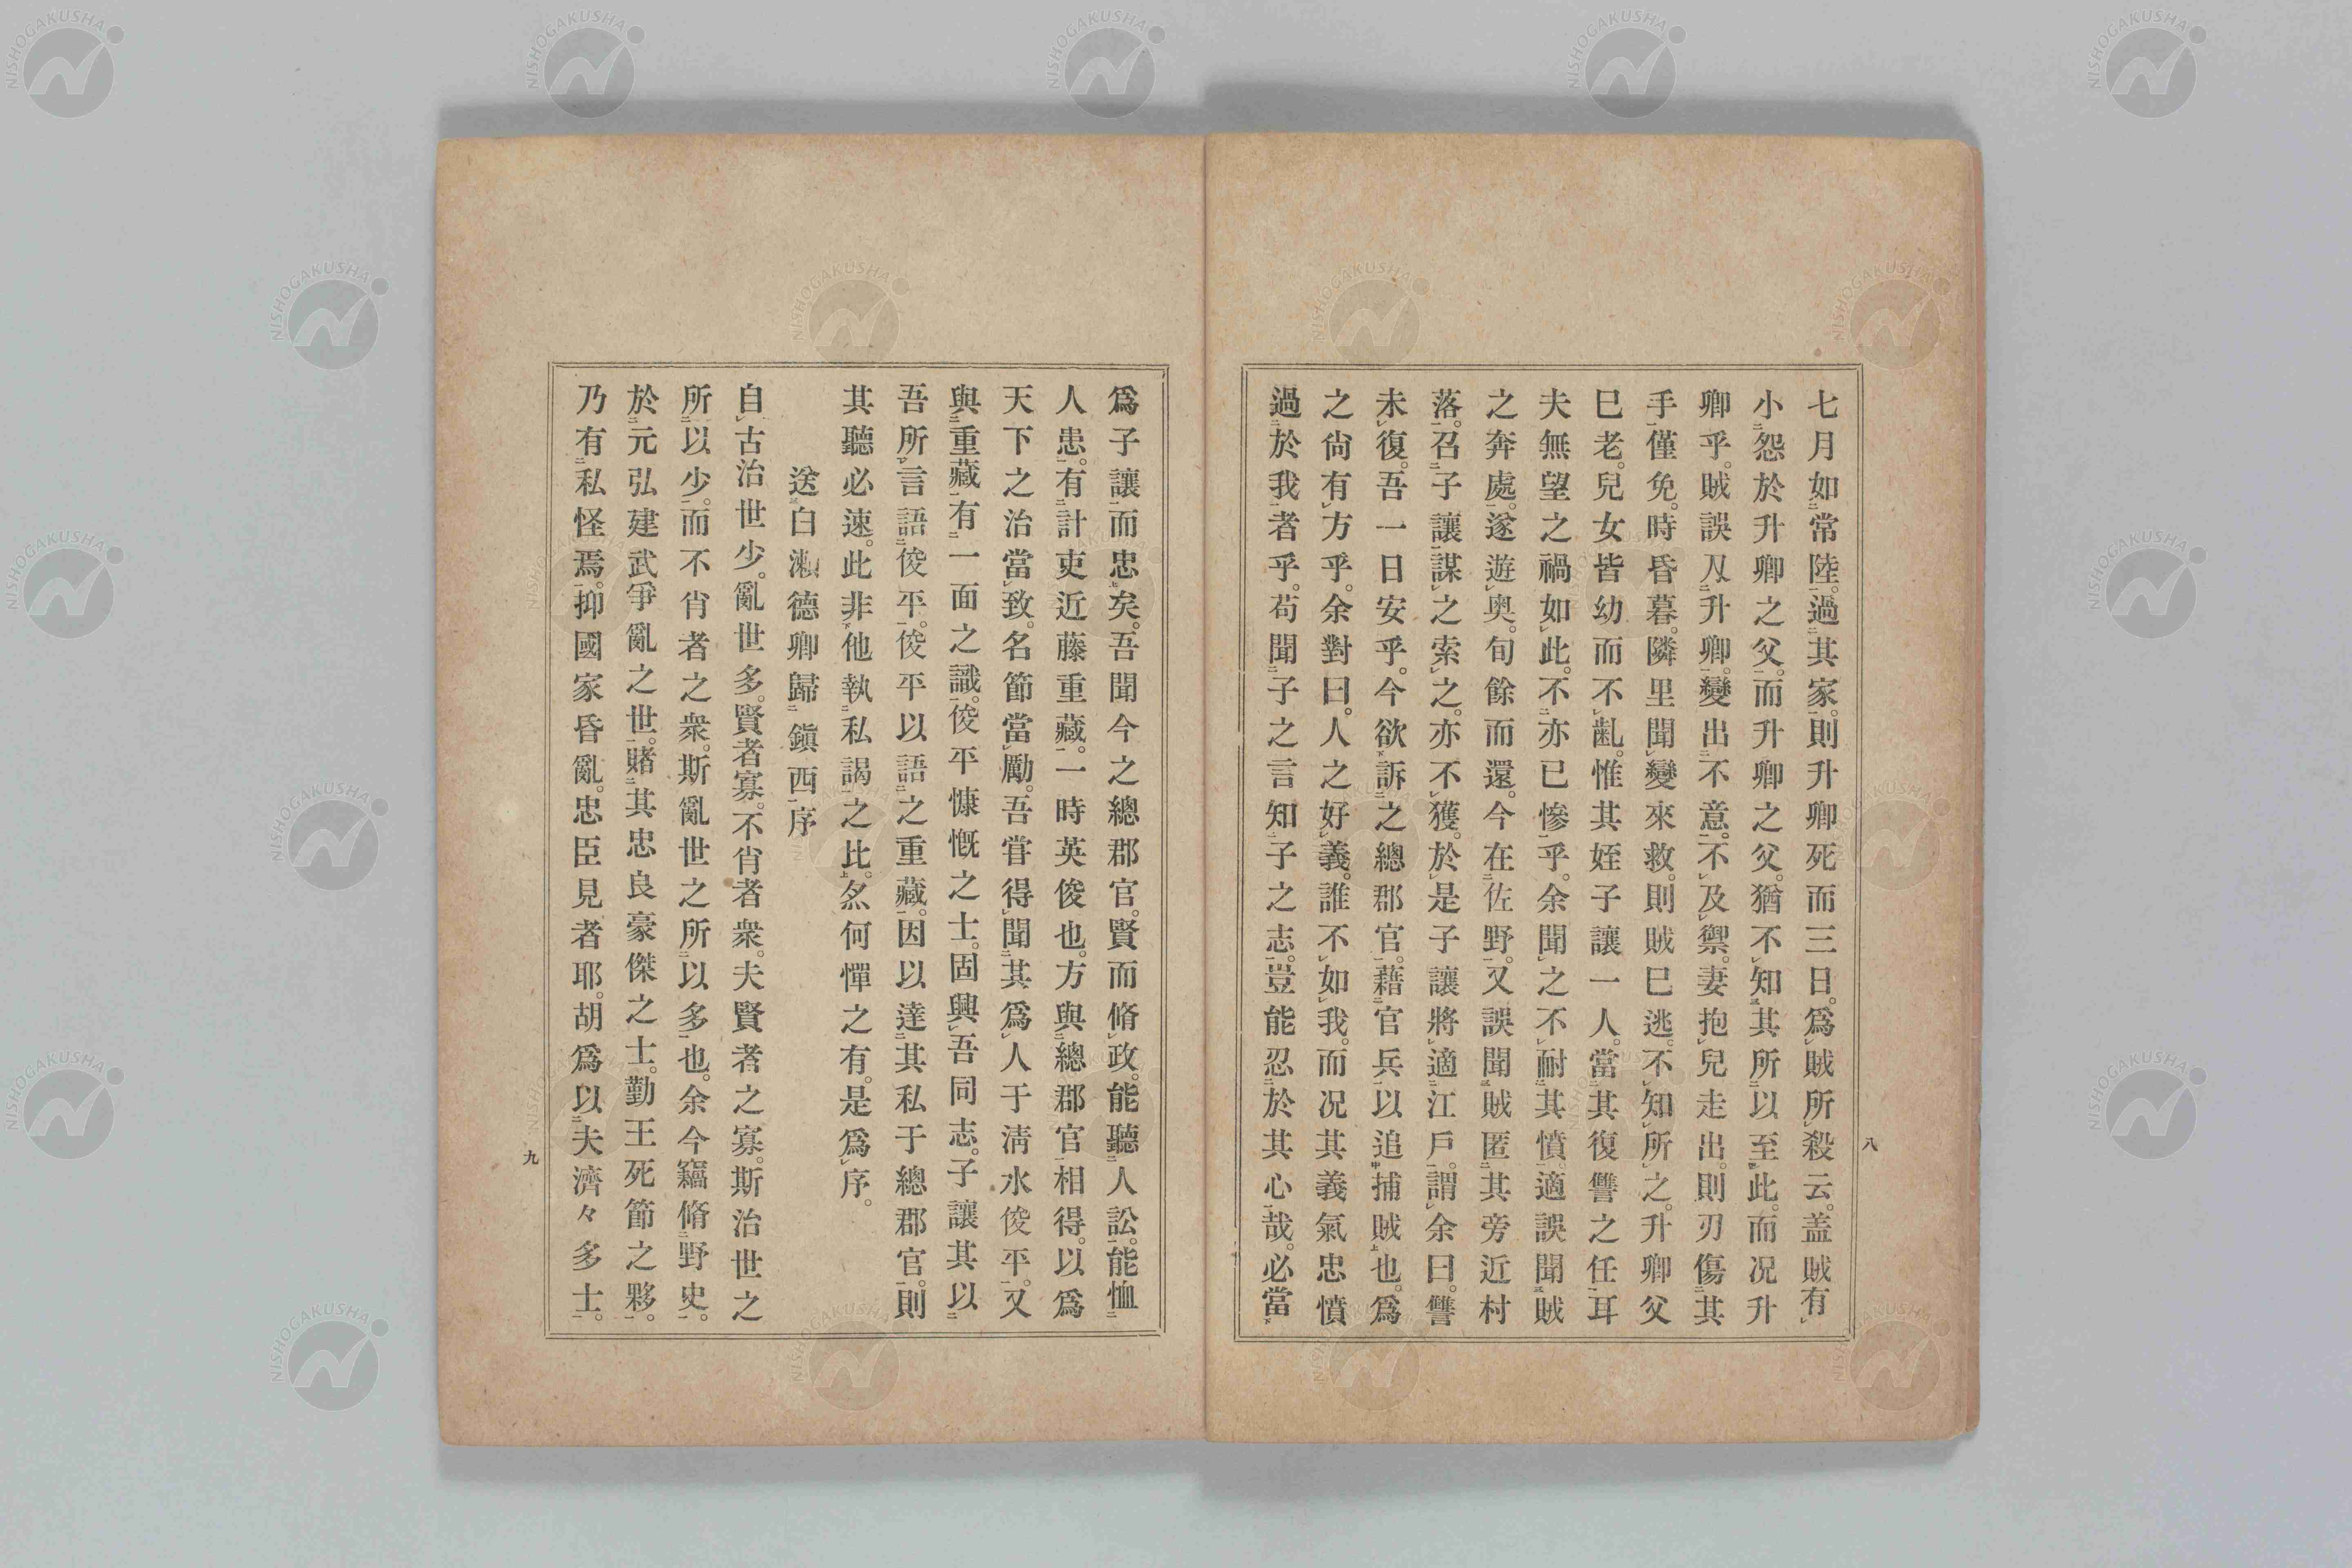 七月如常陸。過其家。則升卿死而三日。爲賊所殺云。盖賊有
小怨於升卿之父。而升卿之父。猶不知其所以至此。而況升
卿乎。賊誤刄升卿。變出不意。不及禦。妻抱兒走出。則刃傷其
手。僅免。時昏暮。隣里聞變來救。則賊巳逃。不知所之。升卿父
巳老。兒女皆幼而不亂。惟其姪子讓一人。當其復讐之任耳
夫無望之禍如此。不亦已慘乎。余聞之不耐其憤。適誤聞賊
之奔處。遂遊奥。旬餘而還。今在佐野。又誤聞賊匿其旁近村
落。召子讓謀之索之。亦不獲。於是子讓將適江戶。謂余曰。讐
未復。吾一日安乎。今欲訴之總郡官。藉官兵以追捕賊也。爲
之尙有方乎。余對曰。人之好義。誰不如我。而況其義氣忠憤
過於我者乎。苟聞子之言知子之志。豈能忍於其心哉。必當
八
爲子讓而忠矣。吾聞今之總郡官。賢而脩政。能聽人訟。能恤
人患。有計吏近藤重藏。一時英俊也。方與總郡官相得。以爲
天下之治當致。名節當勵。吾嘗得聞其爲人于淸水俊平。又
與重藏有一面之識。俊平慷慨之士。固興吾同志。子讓其以
吾所言語俊平。俊平以語之重藏。因以達其私于總郡官。則
其聽必速。此非他執私謁之比。然何憚之有。是爲序。
送白瀨德卿歸鎭西序
自古治世少。亂世多。賢者寡。不肖者衆。夫賢者之寡。斯治世之
所以少。而不肖者之衆。斯亂世之所以多也。余今竊脩野史。
於元弘建武爭亂之世。賭其忠良豪傑之士。勤王死節之夥。
乃有私怪焉。抑國家昏亂。忠臣見者耶。胡爲以夫濟々多士。
九
NISHOGAKUSHA